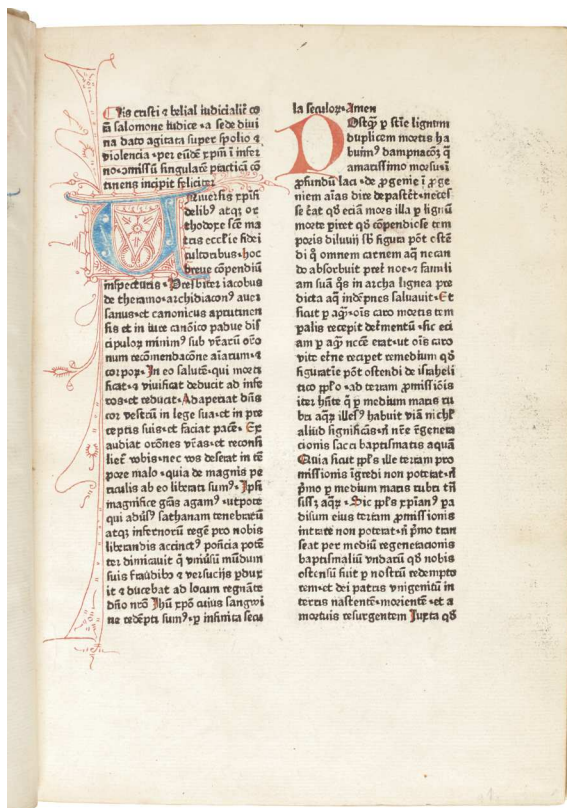 Lis cristi ⁊ belial iudicialiť co
rā salomone iudice · a sede diui
na dato agitata super spolio ⁊
violencia · per eūdē xp̄m ī infer
no · ꝯmissū singularē practicā cō
tinens incipit feliciter
Vniuersis xpīfi
delib⁹ atqꝫ or
thodoxe scē ma
tris ecclīe fidei
cultoribus · hoc
breue cōpendiū
inspecturis · Presbiter iacobus
de theramo · archidiacon⁹ auer
sanus · et canonicus aprutinen
sis et in iure canōico padue dis
cipuloꝝ minim⁹ sub vr̄arū orō
num recōmendacōne aīarum · ⁊
corpoꝝ · In eo salutē · qui morti
ficat · ⁊ viuificat deducit ad infe
ros · et reducit · Adaperiat dūs
cor vestrū in lege sua · et in pre
ceptis suis · et faciat pacē · Ex
audiat orōnes vr̄as · et reconsi
liet̄ vobis · nec vos deserat in tē
pore malo · quia de magnis pe
riculis ab eo liberati sum⁹ · Ipsi
magnifice grās agam⁹ · utpote
qui adūs⁹ sathanam tenebrarū
atqꝫ infernorū regē pro nobis
liberandis accinct⁹ potēcia potē
ter dimicauit q̄ vniūsū mūdum
suis fraudibꝰ ⁊ versucijs ꝑdux
it ⁊ ducebat ad locum regnāte
dn̄o nr̄o Ihū xp̄o cuius sangwi
ne redēpti sum⁹ · ꝑ infinita secu
la seculoꝝ · Amen
Postqꝫ ꝑ scīe lignum
duplicem mortis ha
buim⁹ dampnacōꝫ q̄
amarissīmo morsu · ī
ꝓfundū laci · de ꝓgenie ī ꝓge
niem aīas dire depascēt · neces
se erat qđ eciā mors illa ꝑ lignū
morte ꝑiret qđ cōpendiose tem
poris diluuij sb̄ figura pōt ostē
di q̄ omnem carnem aqꝫ necan
do absorbuit preter noe · ⁊ famili
am suā q̄s in archa lignea pre
dicta aqꝫ indēpnes saluauit · Et
sicut ꝑ aqꝫ · oīs caro mortis tem
palis recepit detrimentū · sic eci
am ꝑ aqꝫ nccē erat · ut oīs caro
vite eterne reciꝑet remedium qđ
figuratīe pōt ostendi de israheli
tico ppl̄o · ad terram ꝓmissiōis
iter hn̄te q̄ ꝑ medium maris ru
bri aqꝫ illes⁹ habuit viā nichil
aliud significās · n̄ nr̄e r̄genera
cionis sacri baptismatis aquā
Quia sicut ppl̄s ille terram pro
missionis īgredi non poterat · n̄
p̄mo ꝑ medium maris rubri trā
siss̄ꝫ aqꝫ · Sic ppl̄s xp̄ian⁹ pa
disum eius terram ꝓmissionis
intrare non poterat · n̄ p̄mo tran
seat per mediū regeneracionis
baptismaliū vndarū qđ nobis
ostensū fuit ꝑ nostrū redempto
rem · et dei patris vnigenitū in
terris nascentē · morientē · et a
mortuis resurgentem Iuxta qđ